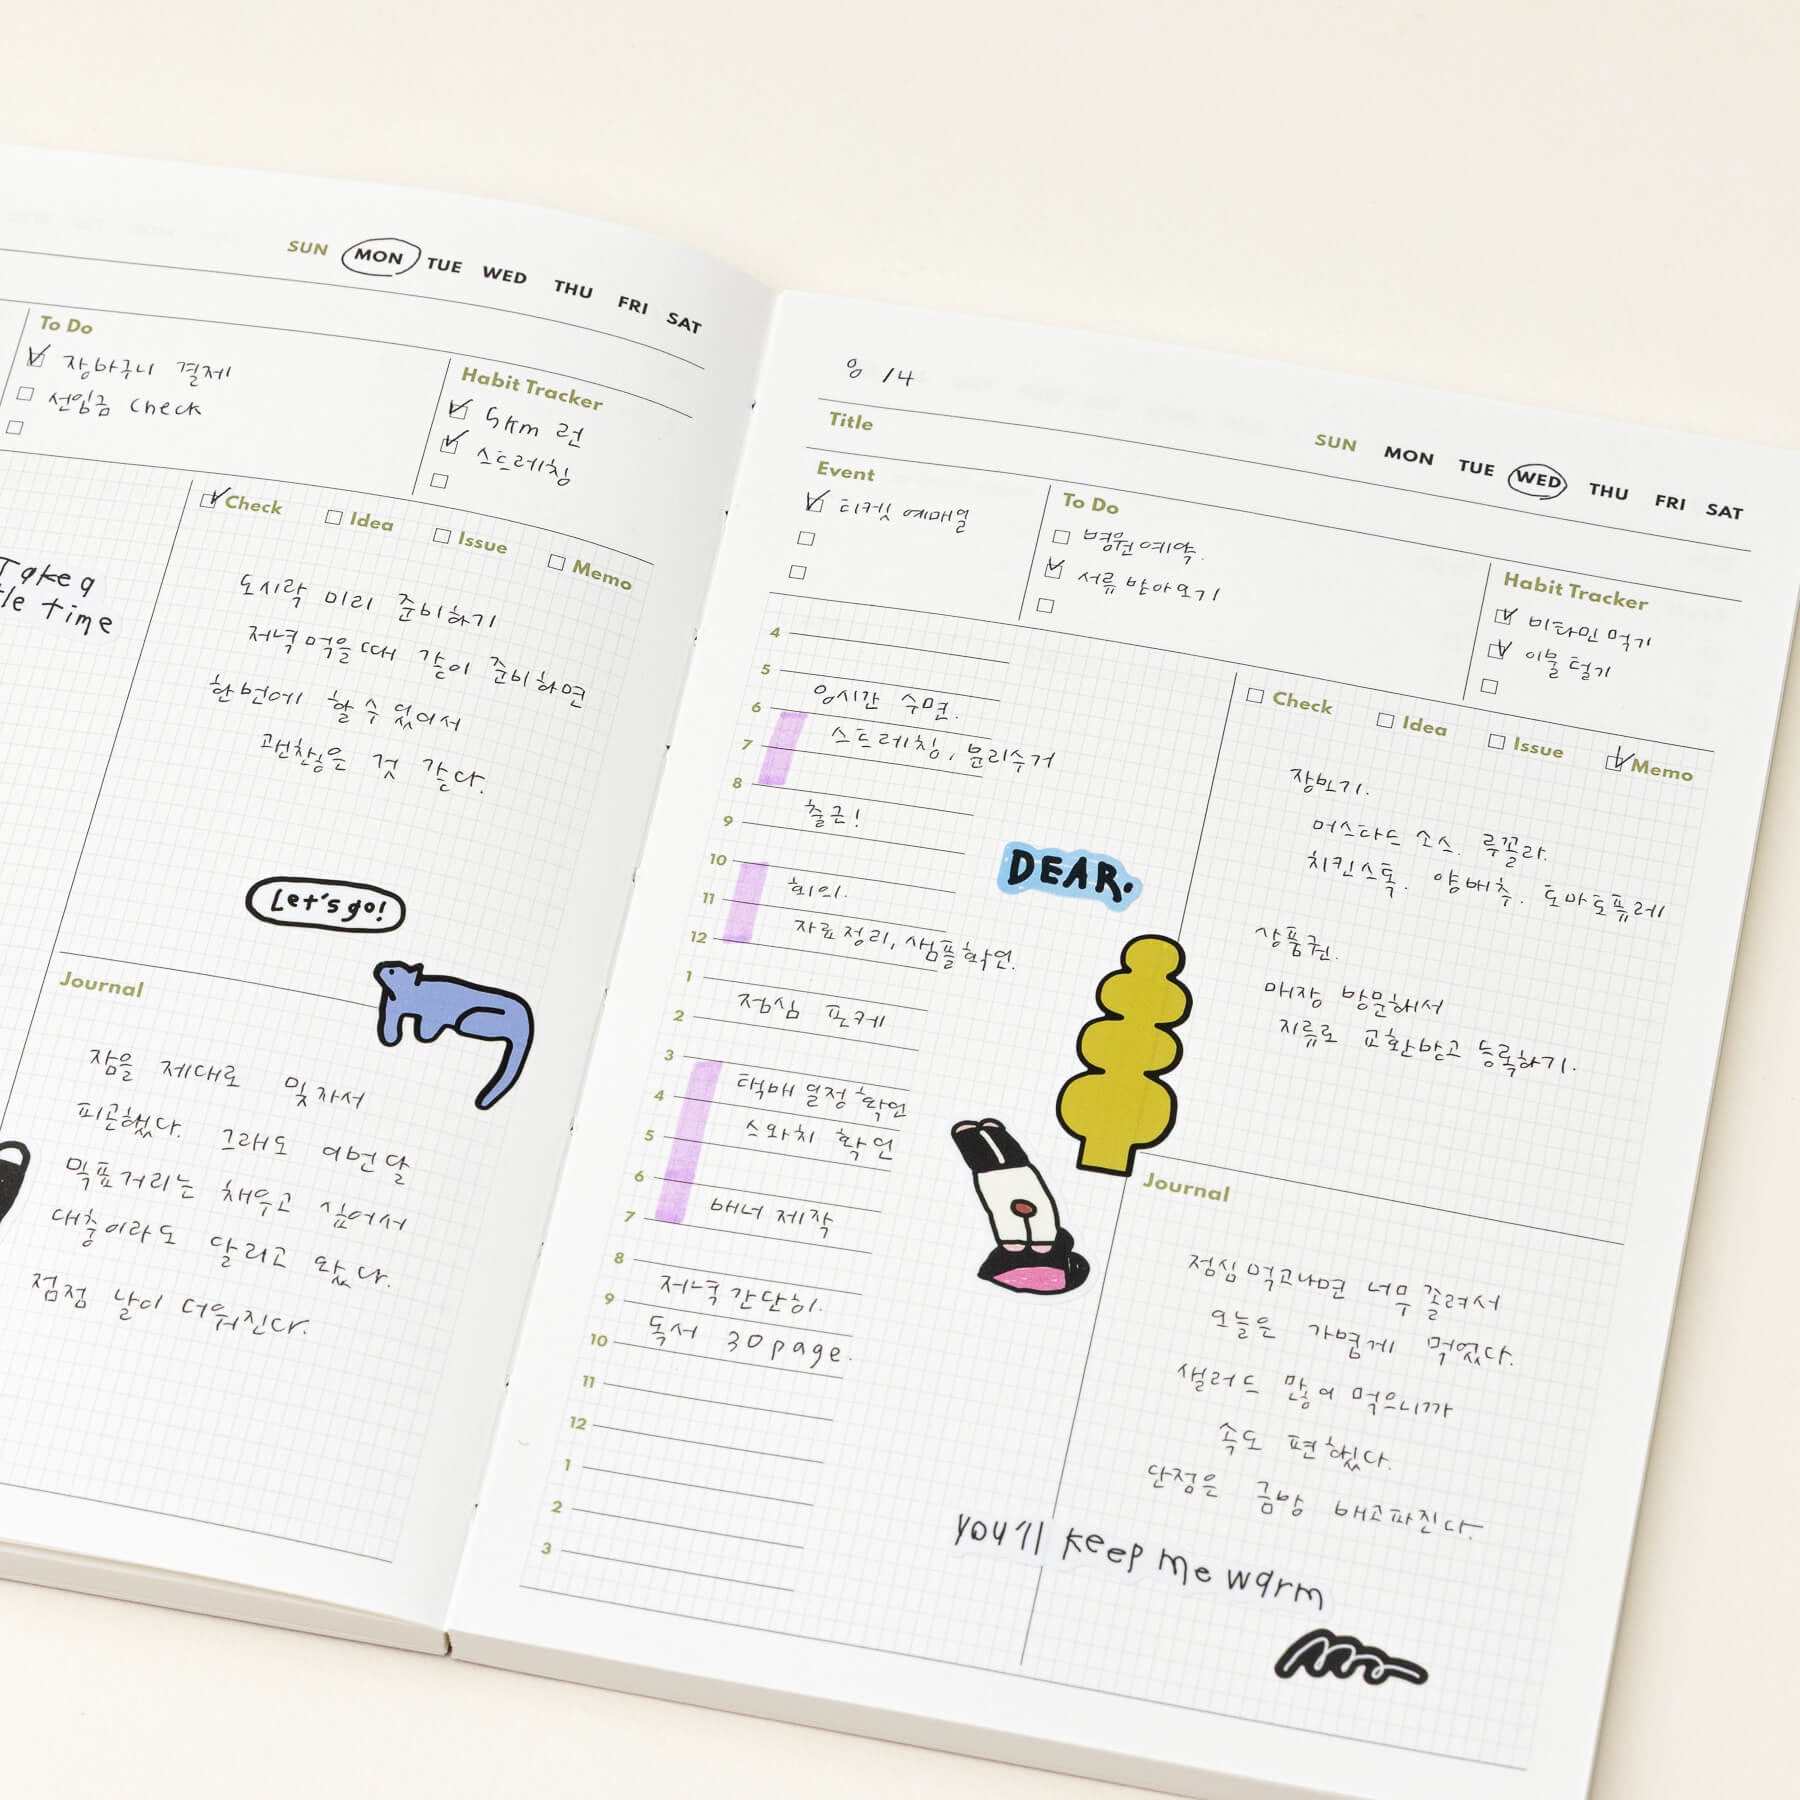 SUN MON TUE WED THU FRI SAT
To Do
장바구니 결제
선입금 check
Habit Tracker
5km 런
스트레칭
Check Idea Issue Memo
Take a
time
도시락 미리 준비하기
저녁먹을때 같이 준비하면
한번에 할 수 있어서
괜찮은 것 같다.
Let's go!
Journal
잠을 제대로 못자서
피곤했다. 그래도 이번달
목표거리는 채우고 싶어서
대충이라도 달리고 왔다.
점점 날이 더워진다.
8 /4
Title
SUN MON TUE WED THU FRI SAT
Event
티켓 예매일
To Do
병원예약.
서류 받아오기
Habit Tracker
비타민 먹기
이불 털기
4
5
8시간 수면.
6
스트레칭, 분리수거
7
8
출근!
9
10
회의.
11
자료정리, 샘플확인.
12
1
점심 포케
2
3
택배 일정 확인
4
스와치 확인
5
6
배너 제작
7
8
저녁 간단히.
9
독서 30page.
10
11
12
1
2
3
DEAR.
Check Idea Issue Memo
장보기.
머스타드 소스. 루꼴라.
치킨스톡. 양배추. 토마토퓨레
상품권.
매장 방문해서
지류로 교환받고 등록하기.
Journal
점심먹고나면 너무 졸려서
오늘은 가볍게 먹었다.
샐러드 많이 먹으니까
속도 편했다.
단점은 금방 배고파진다.
you'll keep me warm